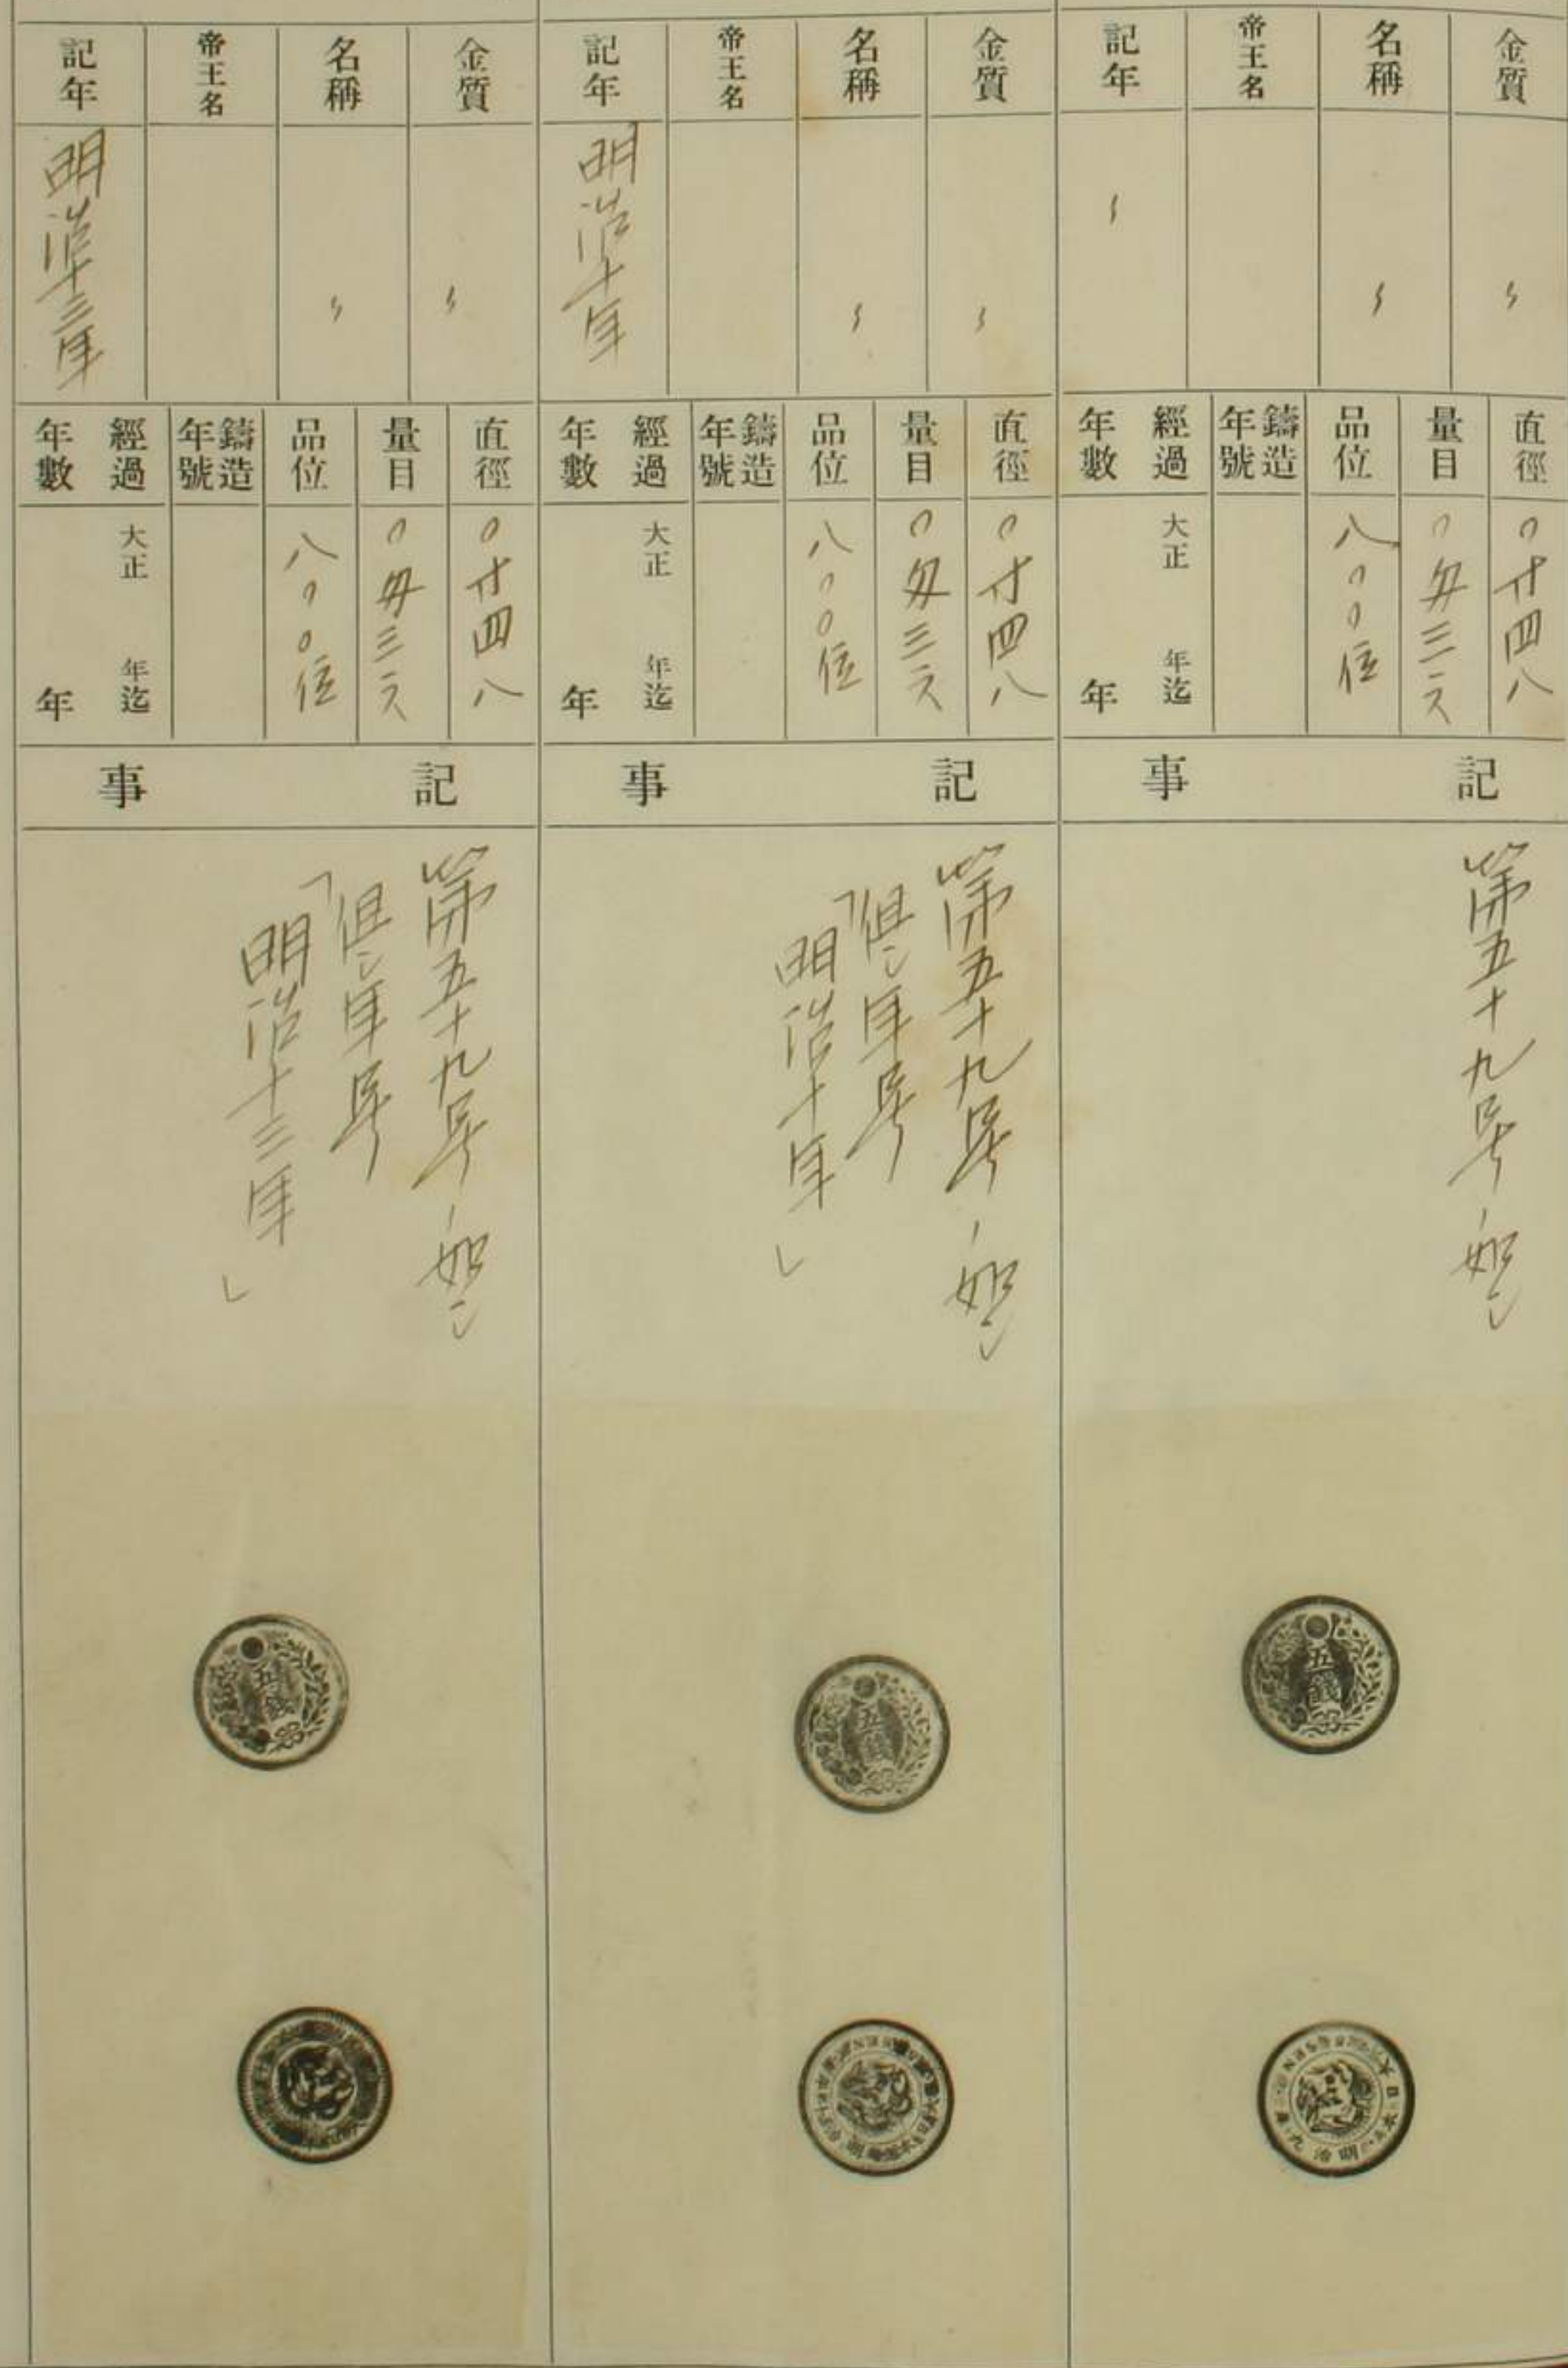 金質
〻
名稱
〻
帝王名
記年
〻
直徑
〇寸四八
量目
〇匁三二
品位
八〇〇位
鑄造年號
經過年數
大正 年迄
年
記事
第五十九号ノ如シ
五錢
大日本
明治九年
金質
〻
名稱
〻
帝王名
記年
明治十年
直徑
〇寸四八
量目
〇匁三
品位
八〇〇位
鑄造年號
經過年數
大正 年迄
年
記事
第五十九号ノ如シ
但シ年号
「明治十年」
五錢
金質
〻
名稱
〻
帝王名
記年
明治十三年
直徑
〇寸四八
量目
〇匁三
品位
八〇〇位
鑄造年號
經過年數
大正 年迄
年
記事
第五十九号ノ如シ
但シ年号
「明治十三年」
五錢